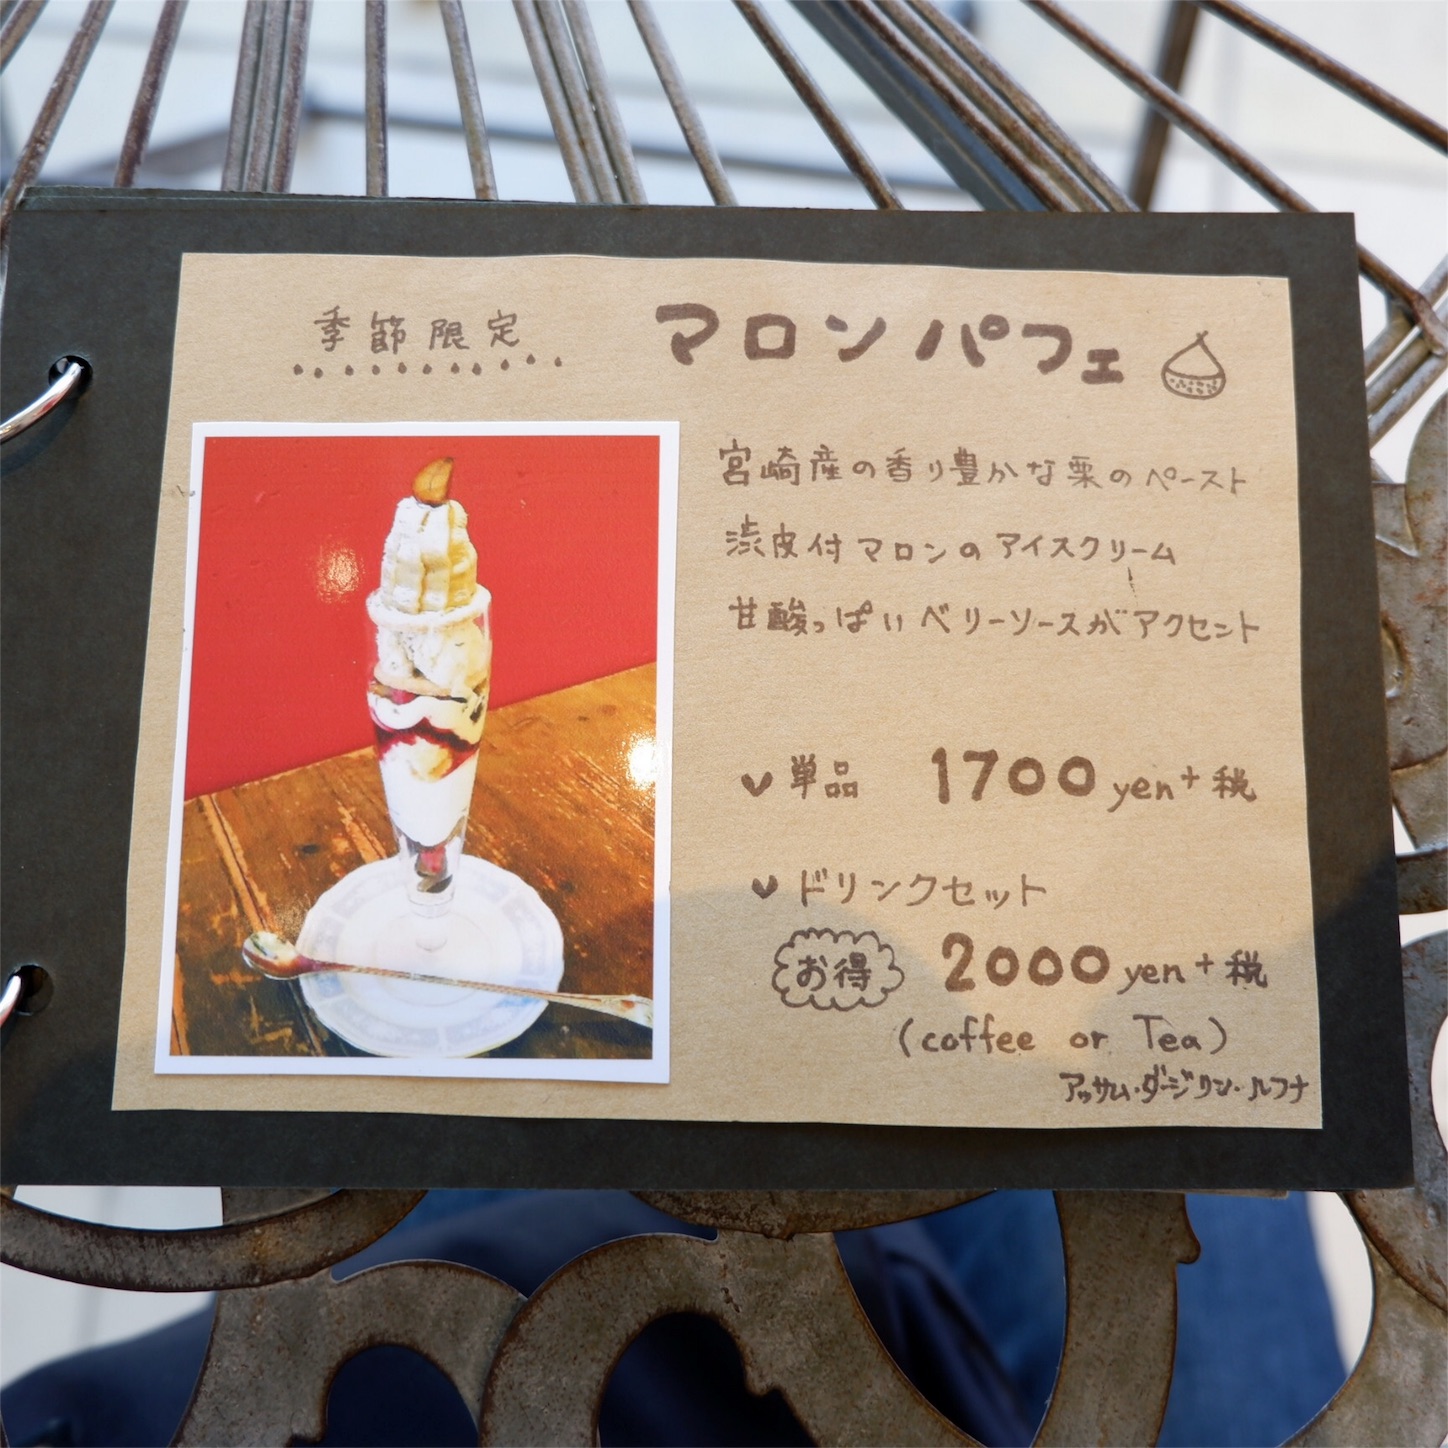 季節限定
マロンパフェ
宮崎産の香り豊かな栗のペースト
渋皮付マロンのアイスクリーム
甘酸っぱいベリーソースがアクセント
単品 1700yen+税
ドリンクセット
お得 2000yen+税
(coffee or Tea)
アッサム・ダージリン・ルフナ